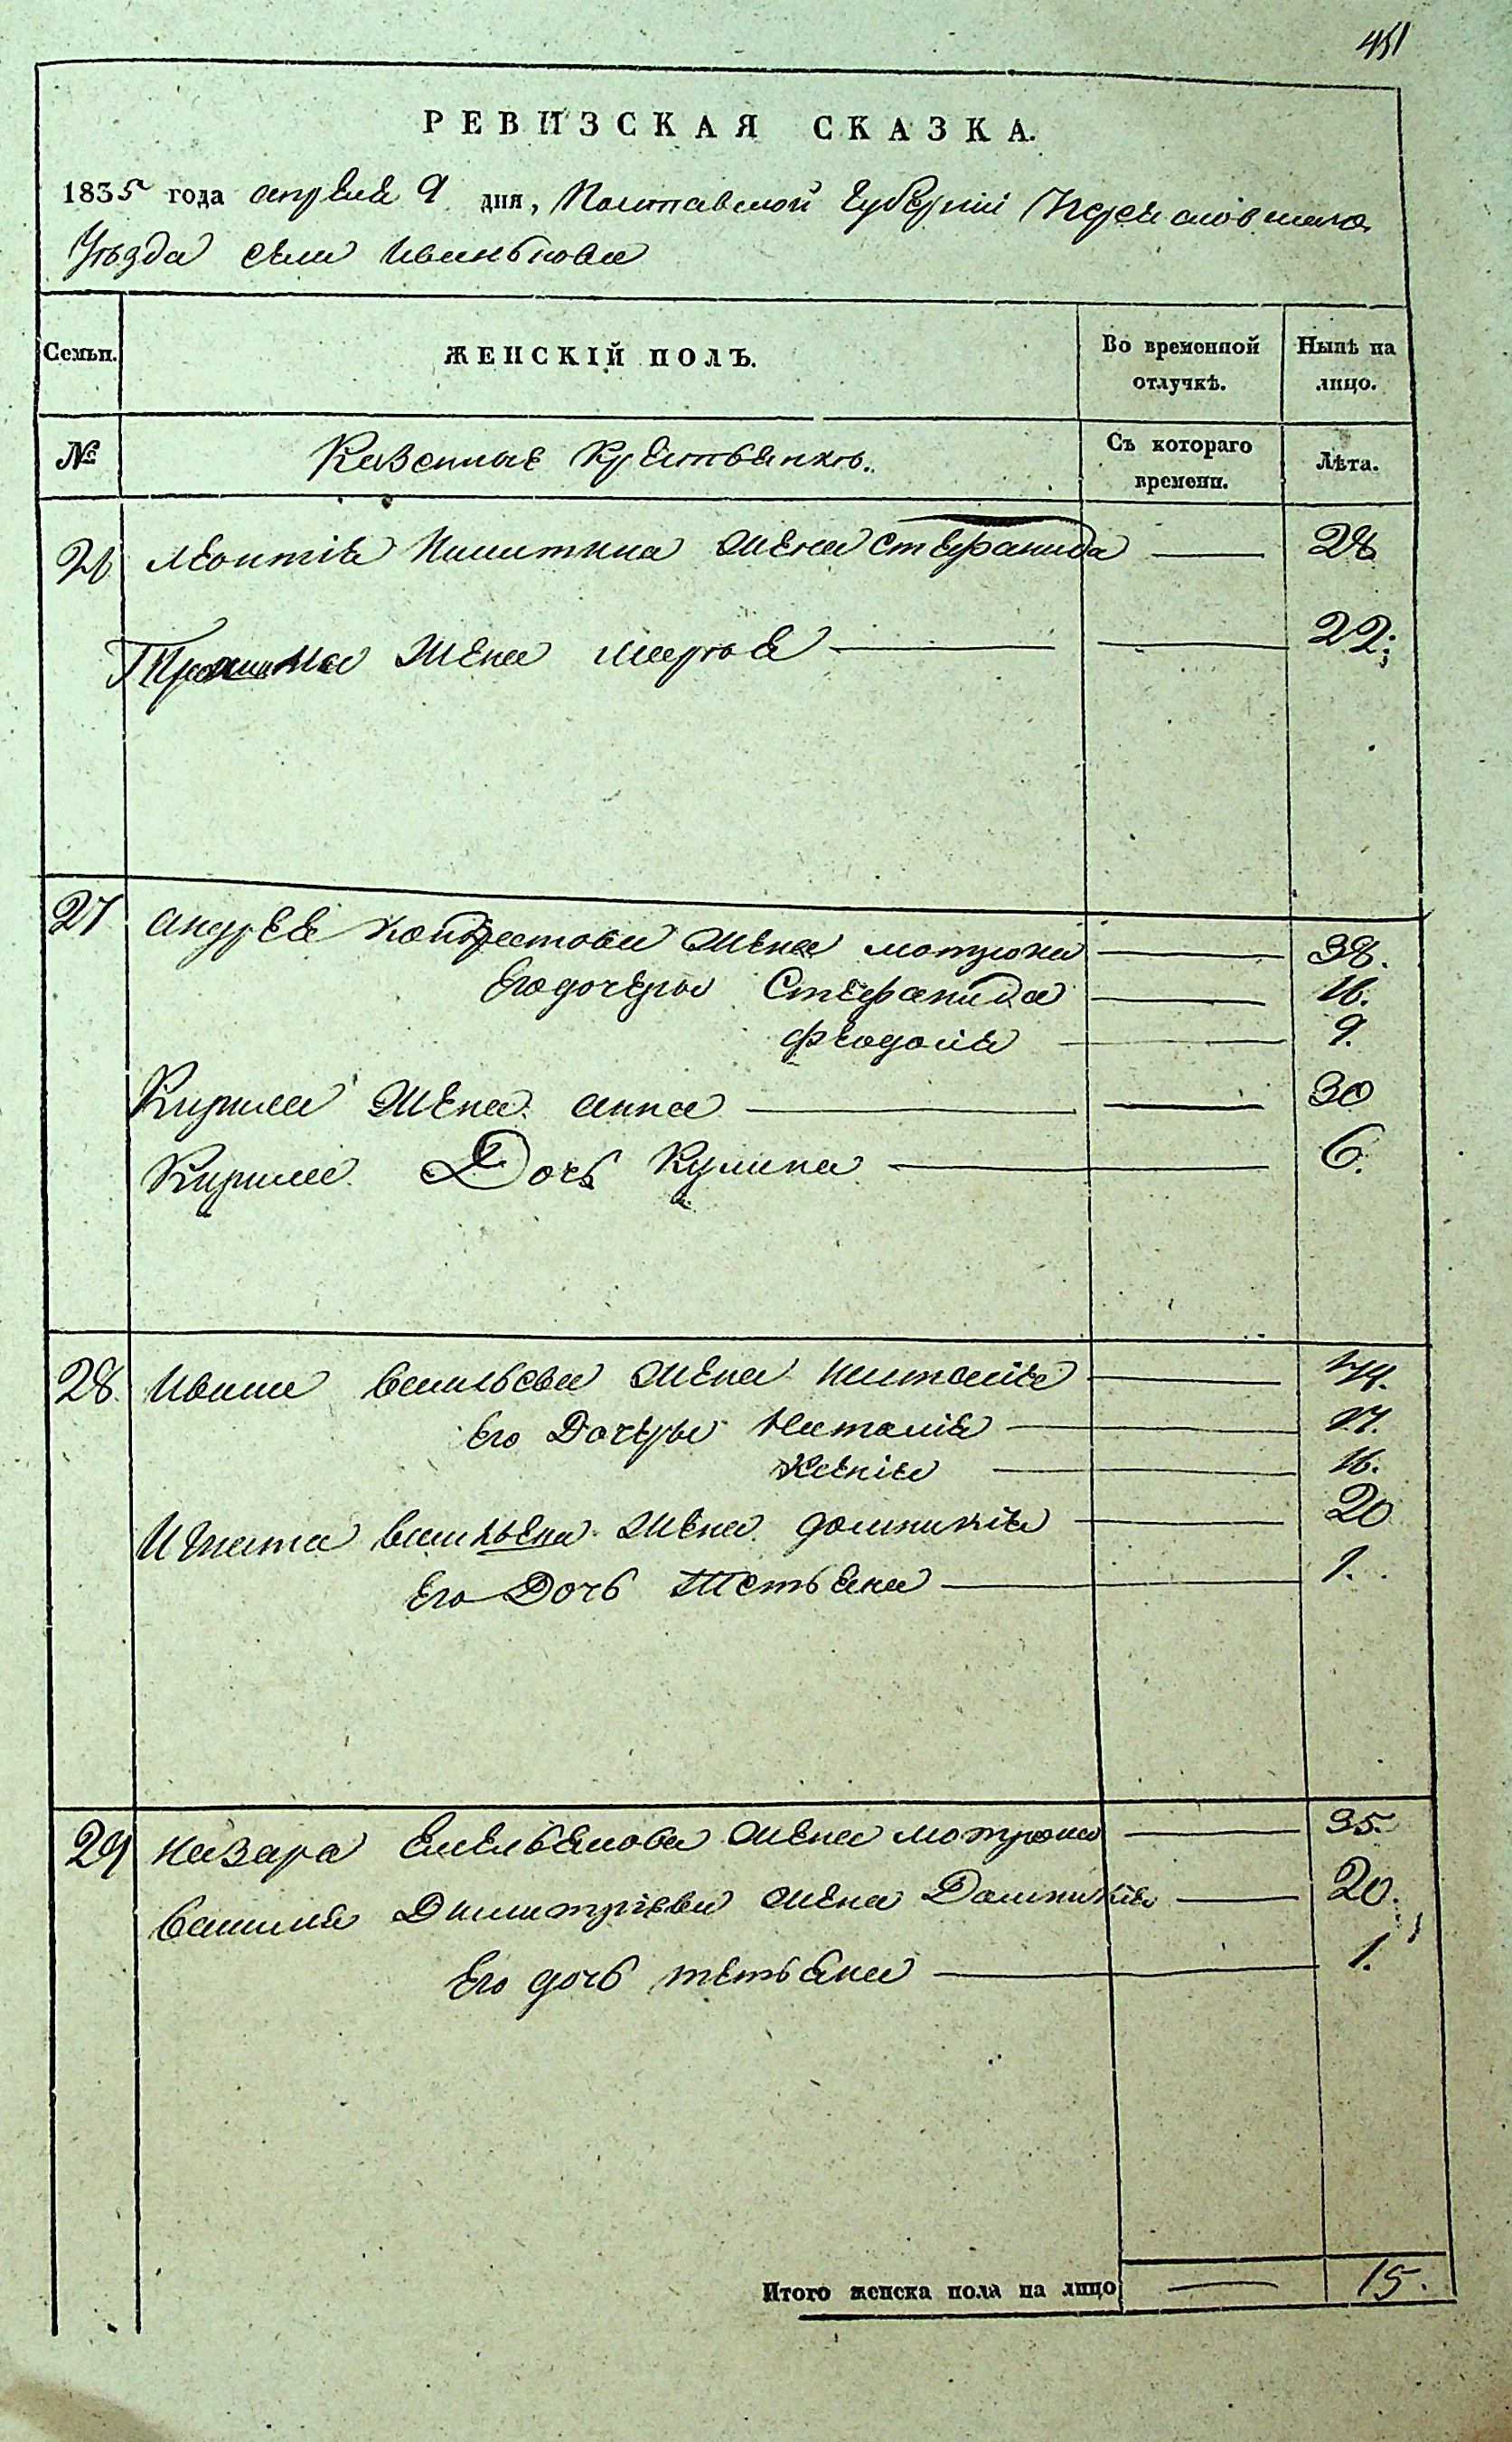 451
РЕВИЗСКАЯ СКАЗКА.
1835 года апреля 9 дня, Полтавской Губернии Переясловского
Уезда села Иванькова
Семьи. ЖЕНСКІЙ ПОЛЪ. Во временной отлучкѣ. Нынѣ на лицо.
№ Казенные Крестьянки. Съ котораго времени. Лѣта.
26 Леонтія Никитина жена Стефанида — 28
жена Марья — 22
27 Андрея жена Мотрона — 38.
Его дочери Стефанида — 16.
Феодосія — 9.
Кирила жена Анна — 30
Кирила Дочь Кулина — 6.
28. Ивана Васильева жена Наталія — 44.
Его Дочери Наталія — 17.
Ксенія — 16.
Игната Васильева жена Домникія — 20
Его Дочь Тетьяна — 1.
29 Назара Емельянова жена Мотрона — 35.
Василія Димитріева жена Домникія — 20.
Его дочь тетьяна — 1.
Итого женска пола на лицо — 15.